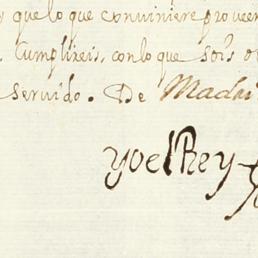 que lo que conviniere proveer
Cumplireis, con lo que sois o
servido. De Madri
yo el Rey